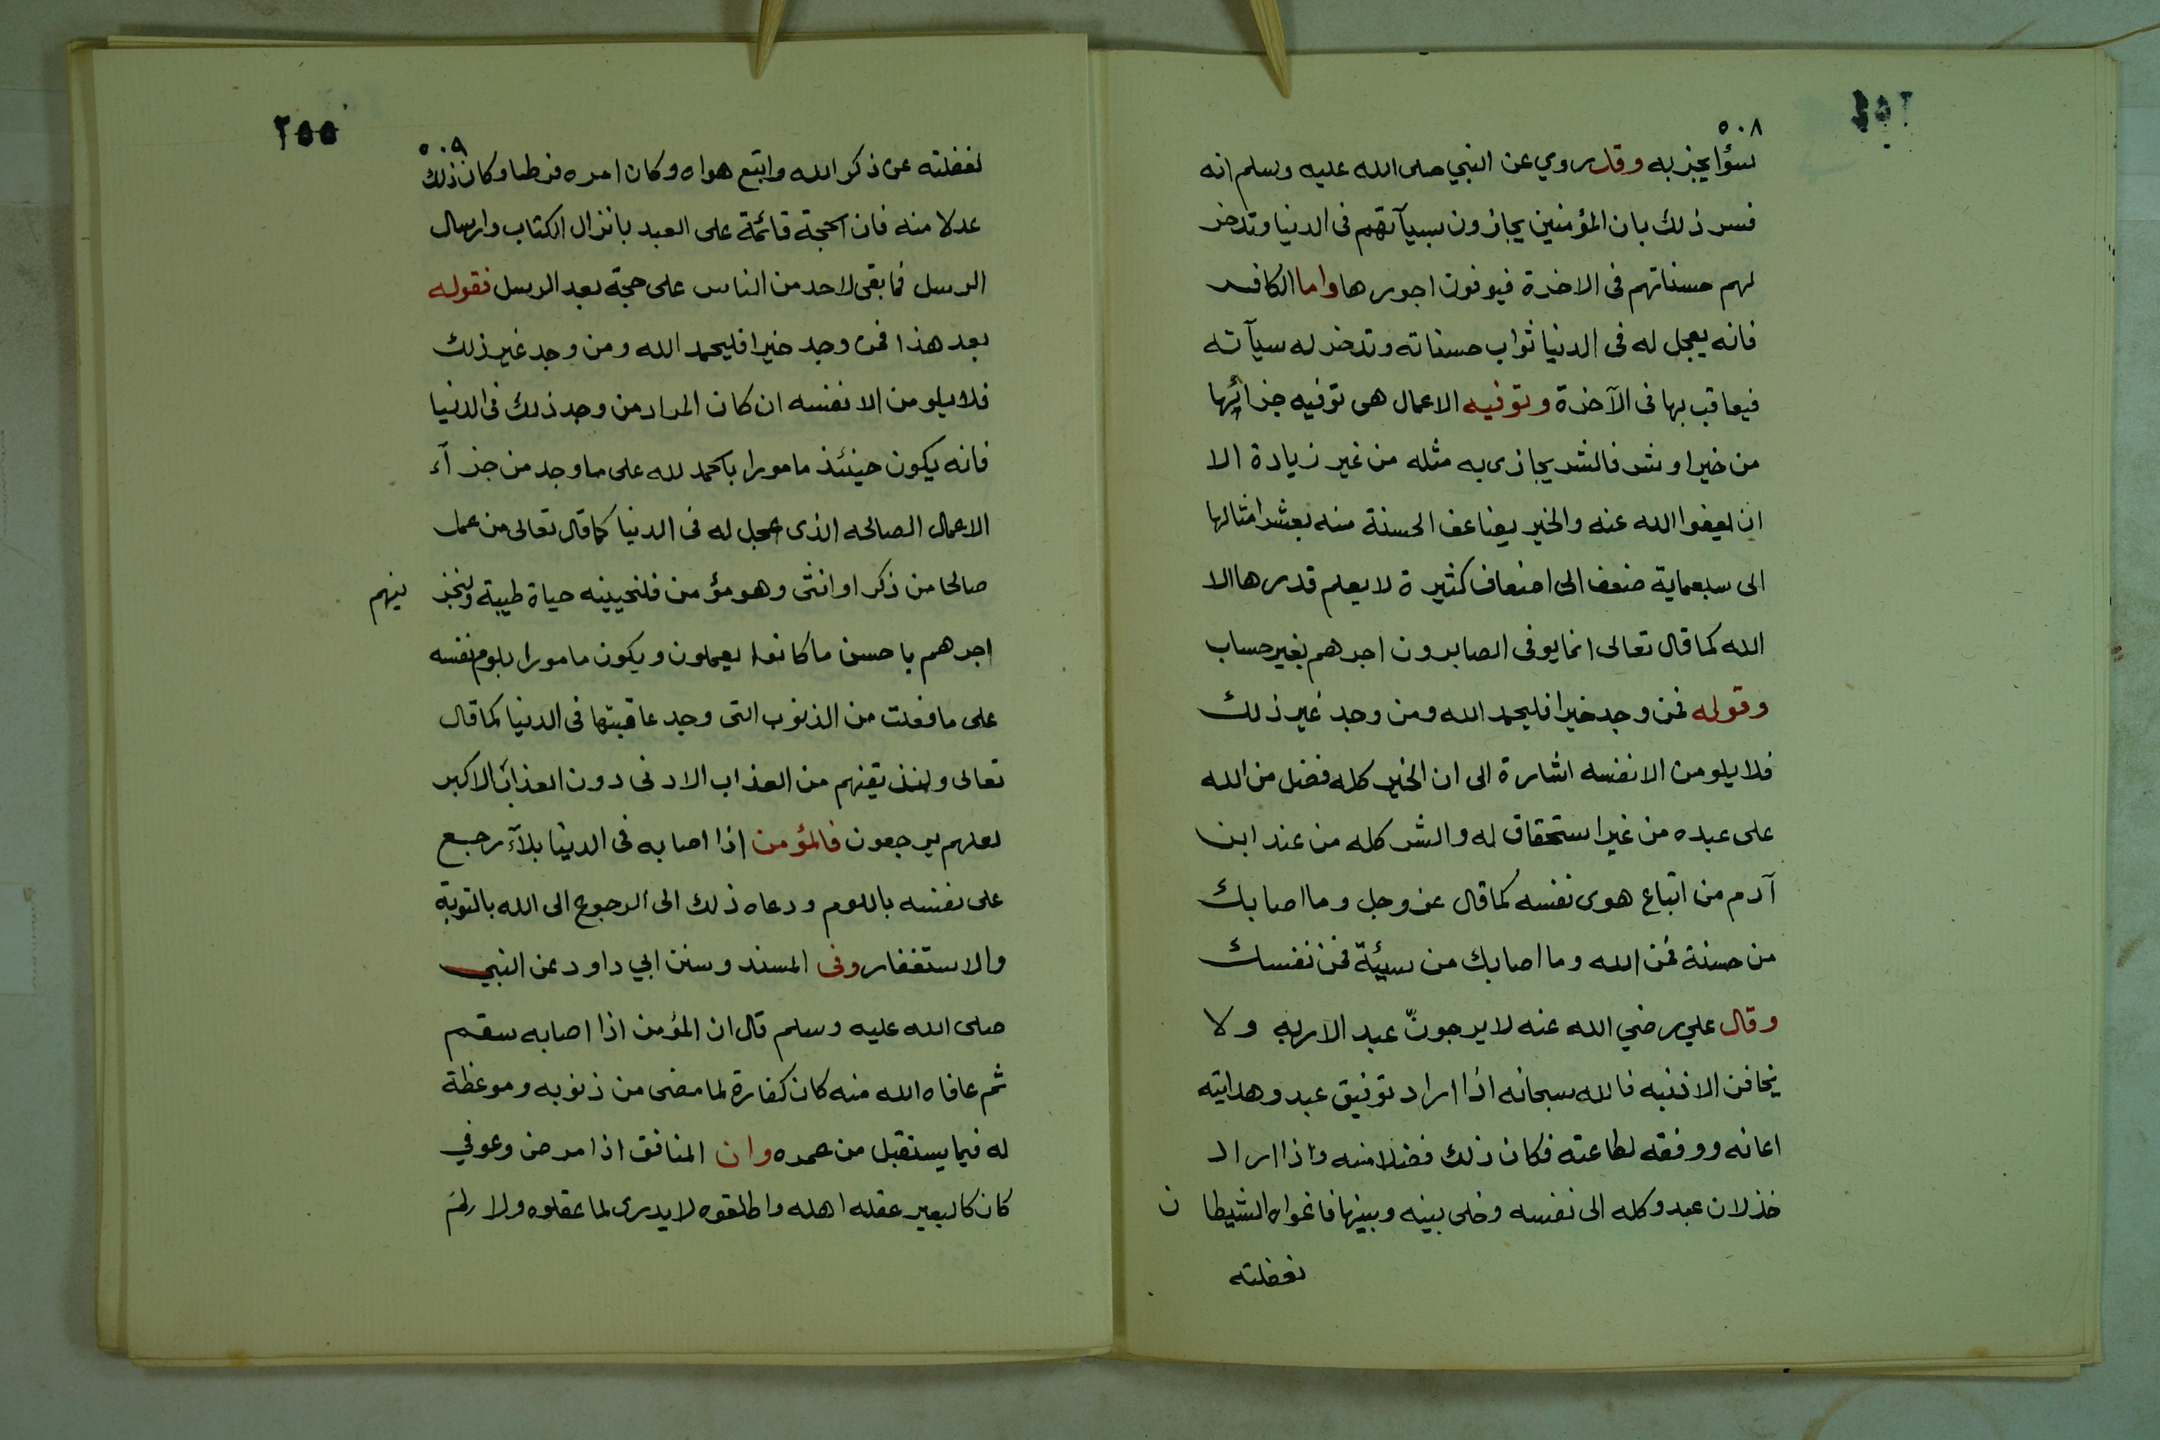 ٥٠٨
سؤا يجز به وقد روي عن النبي صلى الله عليه وسلم انه
فسر ذلك بان المؤمنين يجازون بسيآتهم فى الدنيا وتدخر
لهم حسناتهم فى الاخرة فيوفون اجورها واما الكافر
فانه يعجل له فى الدنيا ثواب حسناته وتدخر له سيآته
فيعاقب بها فى الآخرة وتوفيه الاعمال هى توفيه جزائها
من خير او شر فالشر يجازى به مثله من غير زيادة الا
ان يعفوا الله عنه والخير يضاعف الحسنة منه بعشر امثالها
الى سبعماية ضعف الى اضعاف كثيرة لا يعلم قدرها الا
الله كما قال تعالى انما يوفى الصابرون اجرهم بغير حساب
وقوله فمن وجد خيرا فليحمد الله ومن وجد غير ذلك
فلا يلومن الا نفسه اشارة الى ان الخير كله فضل من الله
على عبده من غير استحقاق له والشر كله من عند ابن
آدم من اتباع هوى نفسه كما قال عز وجل وما اصابك
من حسنة فمن الله وما اصابك من سيئة فمن نفسك
وقال علي رضي الله عنه لا يرجونّ عبد الا ربه ولا
يخافن الا ذنبه فالله سبحانه اذا اراد توفيق عبد وهدايته
اعانه ووفقه لطاعته فكان ذلك فضلا منه واذا اراد
خذلان عبد وكله الى نفسه وخلى بينه وبينها فاغواه الشيطان
لغفلته
٢٥٥
٥٠٩
لغفلته عن ذكر الله واتبع هواه وكان امره فرطا وكان ذلك
عدلا منه فان الحجة قائمة على العبد بانزال الكتاب وارسال
الرسل فما بقى لاحد من الناس على حجة بعد الرسل فقوله
بعد هذا فمن وجد خيرا فليحمد الله ومن وجد غير ذلك
فلا يلومن الا نفسه ان كان المراد من وجد ذلك فى الدنيا
فانه يكون حينئذ مامورا بالحمد لله على ما وجد من جزآء
الاعمال الصالحه الذى عجل له فى الدنيا كما قال تعالى من عمل
صالحا من ذكر او انثى وهو مؤمن فلنحيينه حياة طيبة ولنجز ينهم
اجرهم باحسن ما كانوا يعملون ويكون مامورا بلوم نفسه
على ما فعلت من الذنوب التى وجد عاقبتها فى الدنيا كما قال
تعالى ولنذيقنهم من العذاب الادنى دون العذاب الاكبر
لعلهم يرجعون فالمؤمن اذا اصابه فى الدنيا بلآء رجع
على نفسه باللوم ودعاه ذلك الى الرجوع الى الله بالتوبة
والاستغفار وفى المسند وسنن ابي داود عن النبي
صلى الله عليه وسلم قال ان المؤمن اذا اصابه سقم
ثم عافاه الله منه كان كفارة لما مضى من ذنوبه وموعظة
له فيما يستقبل من عمره وان المنافق اذا مرض وعوفي
كان كالبعير عقله اهله واطلقوه لا يدرى لما عقلوه ولا لم